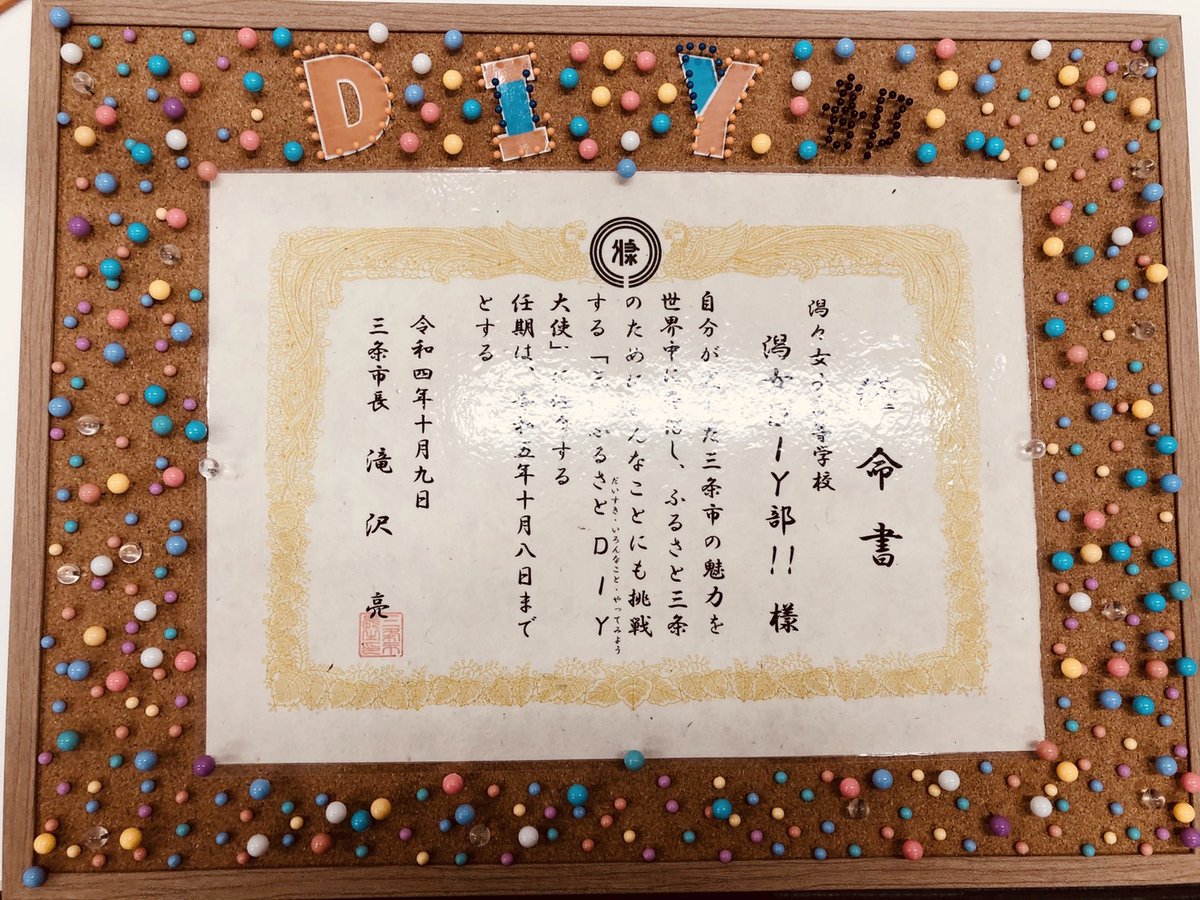 DIY部
命書
潟々女 等学校
潟 DIY部!! 様
自分が た三条市の魅力を
世界中に し、ふるさと三条
のために んなことにも挑戦
する「三 ふるさとDIY
だいすき・いろんなこと・やってみよう
大使」に する
任期は、 五年十月八日まで
とする
令和四年十月九日
三条市長 滝沢 亮